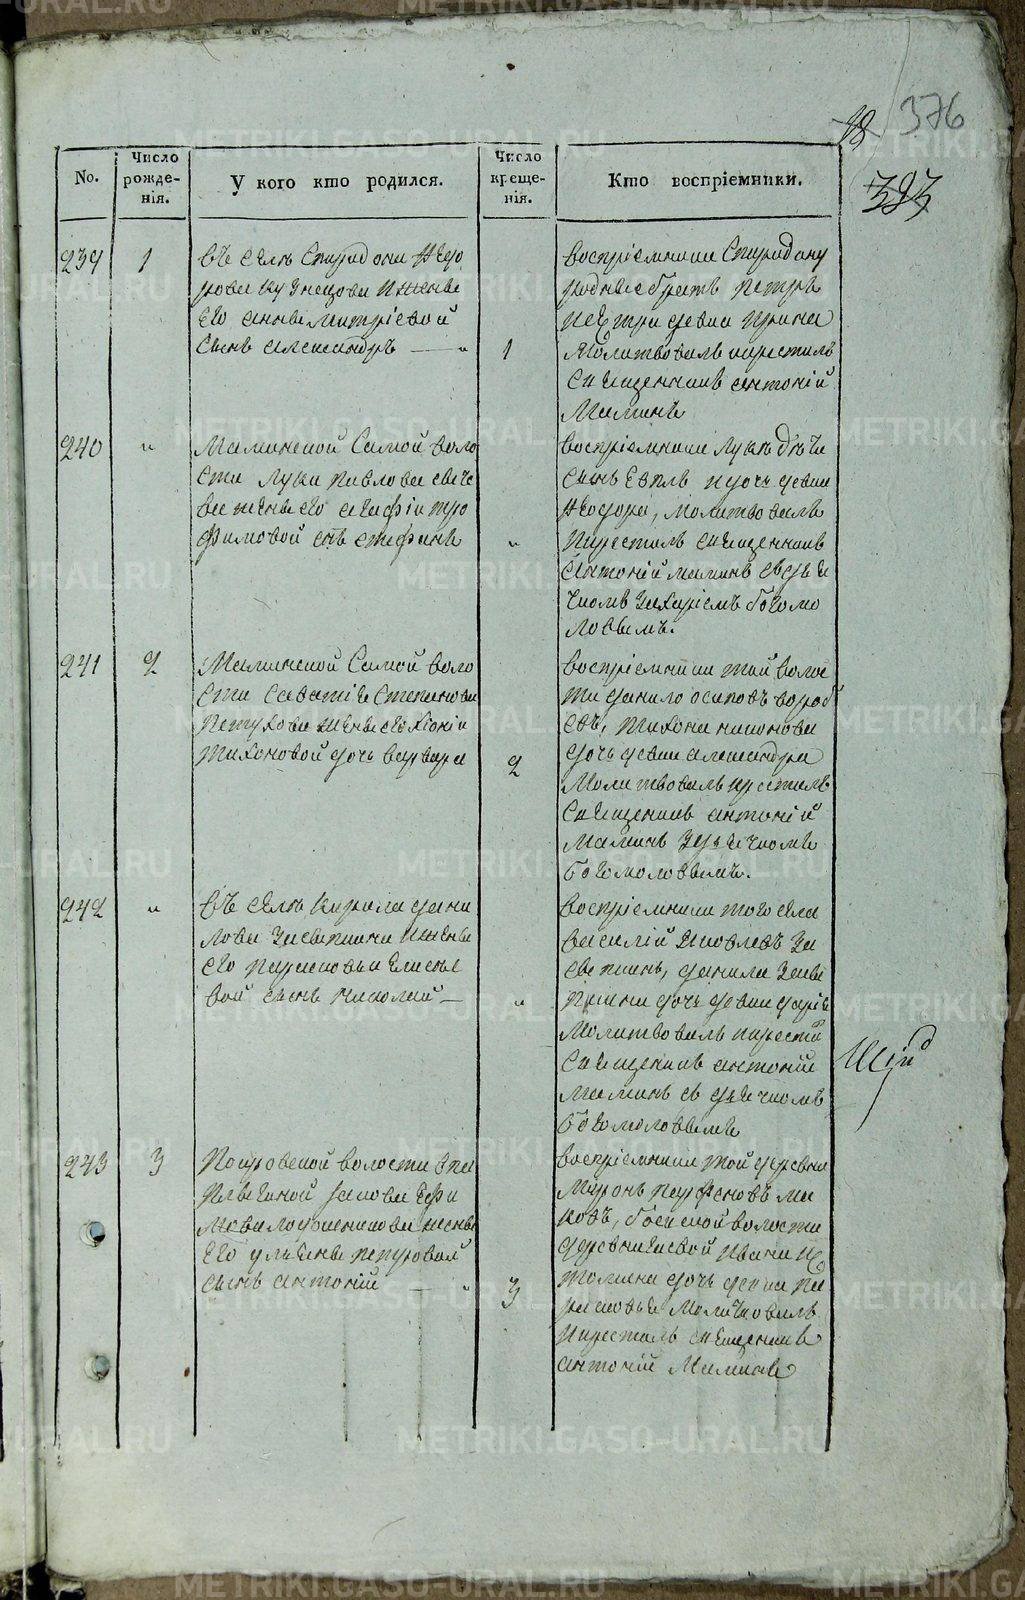 18 376
323
No.
Число рожденія.
У кого кто родился.
Число крещенія.
Кто воспріемники.
239 1
Въ селѣ Спиридони Федо
рова Кузнецова и жены
Его Анны Митріевой
сынъ Александръ — „ 1
воспріемники Спиридону
родные братъ Петръ
сестра девка Ирина
Молитвовалъ и крестилъ
священникъ Антоній
Маминъ
240 „
Маминской Самой воло
сти Луки Павлова
жены его Агафіи Тро
фимовой снъ Стефанъ „
воспріемники Луки дѣти
сынъ Евплъ и дочь девка
Феодора, Молитвовалъ
и крестилъ священникъ
Антоній Маминъ съ дья
чкомъ Захаріемъ Богомо
ловымъ.
241 2
Маминской Самой воло
сти Саватія Степанова
Петухова жены его Хіоніи
Тихоновой дочь Варвара 2
воспріемники той волос
ти Данило Осиповъ Вороб
евъ, Тихона Никонова
дочь девка Александра
Молитвовалъ и крестилъ
священникъ Антоній
Маминъ з дьячкомъ
Богомоловымъ.
242 „
Въ селѣ Кирила Дани
лова Засыпкина и жены
его Парасковьи Елисѣе
вой сынъ Николай — „
воспріемники того села
Василій Яковлевъ За
сыпкинъ, Данила Засы
пкина дочь девка Дарья
Молитвовалъ и крести
священникъ Антоній
Маминъ съ дьячкомъ
Богомоловымъ
243 3
Покровской волости
жены
Его Ульяны Петровой
сынъ Антоній — „ 3
воспріемники той деревни
Миронъ Парфеновъ
волости
деревни Ивана
дочь девка Па
расковья Молитвовалъ
и крестилъ священникъ
Антоній Маминъ
METRIKI.GASO-URAL.RU